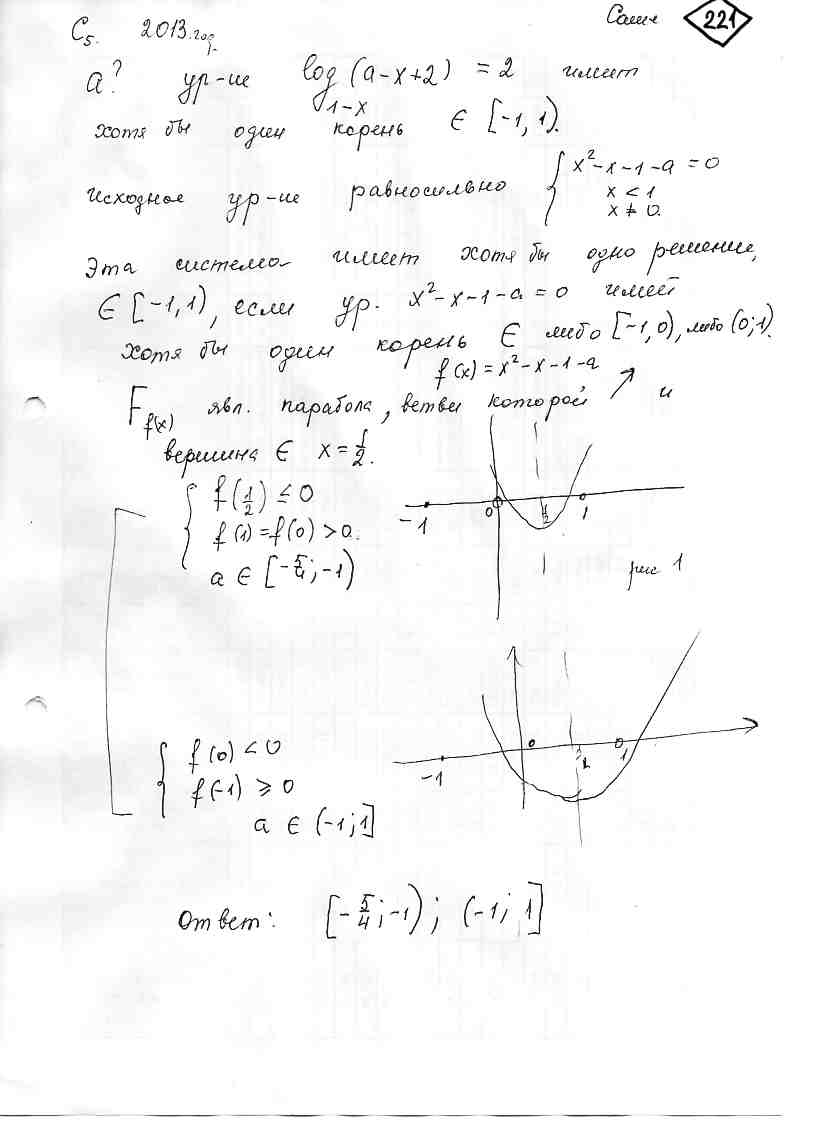 C5. 2013.год. 221
a? ур-ие log (a-x+2) = 2 имеет
1-x
хотя бы один корень ∈ [-1, 1).
Исходное ур-ие равносильно { x²-x-1-a = 0
x < 1
x ≠ 0.
Эта система имеет хотя бы одно решение,
∈ [-1, 1), если ур. x²-x-1-a = 0 имеет
хотя бы один корень ∈ либо [-1, 0), либо (0; 1).
f(x) = x²-x-1-a
F f(x) явл. парабола, ветви которой ↗ и
вершина ∈ x = 1/2.
{ f(1/2) ≤ 0
f(1) = f(0) > 0.
a ∈ [-5/4; -1)
-1 0 1/2 1
рис 1
{ f(0) < 0
f(-1) ≥ 0
a ∈ (-1; 1]
-1 0 1/2 1
Ответ: [-5/4; -1); (-1; 1]